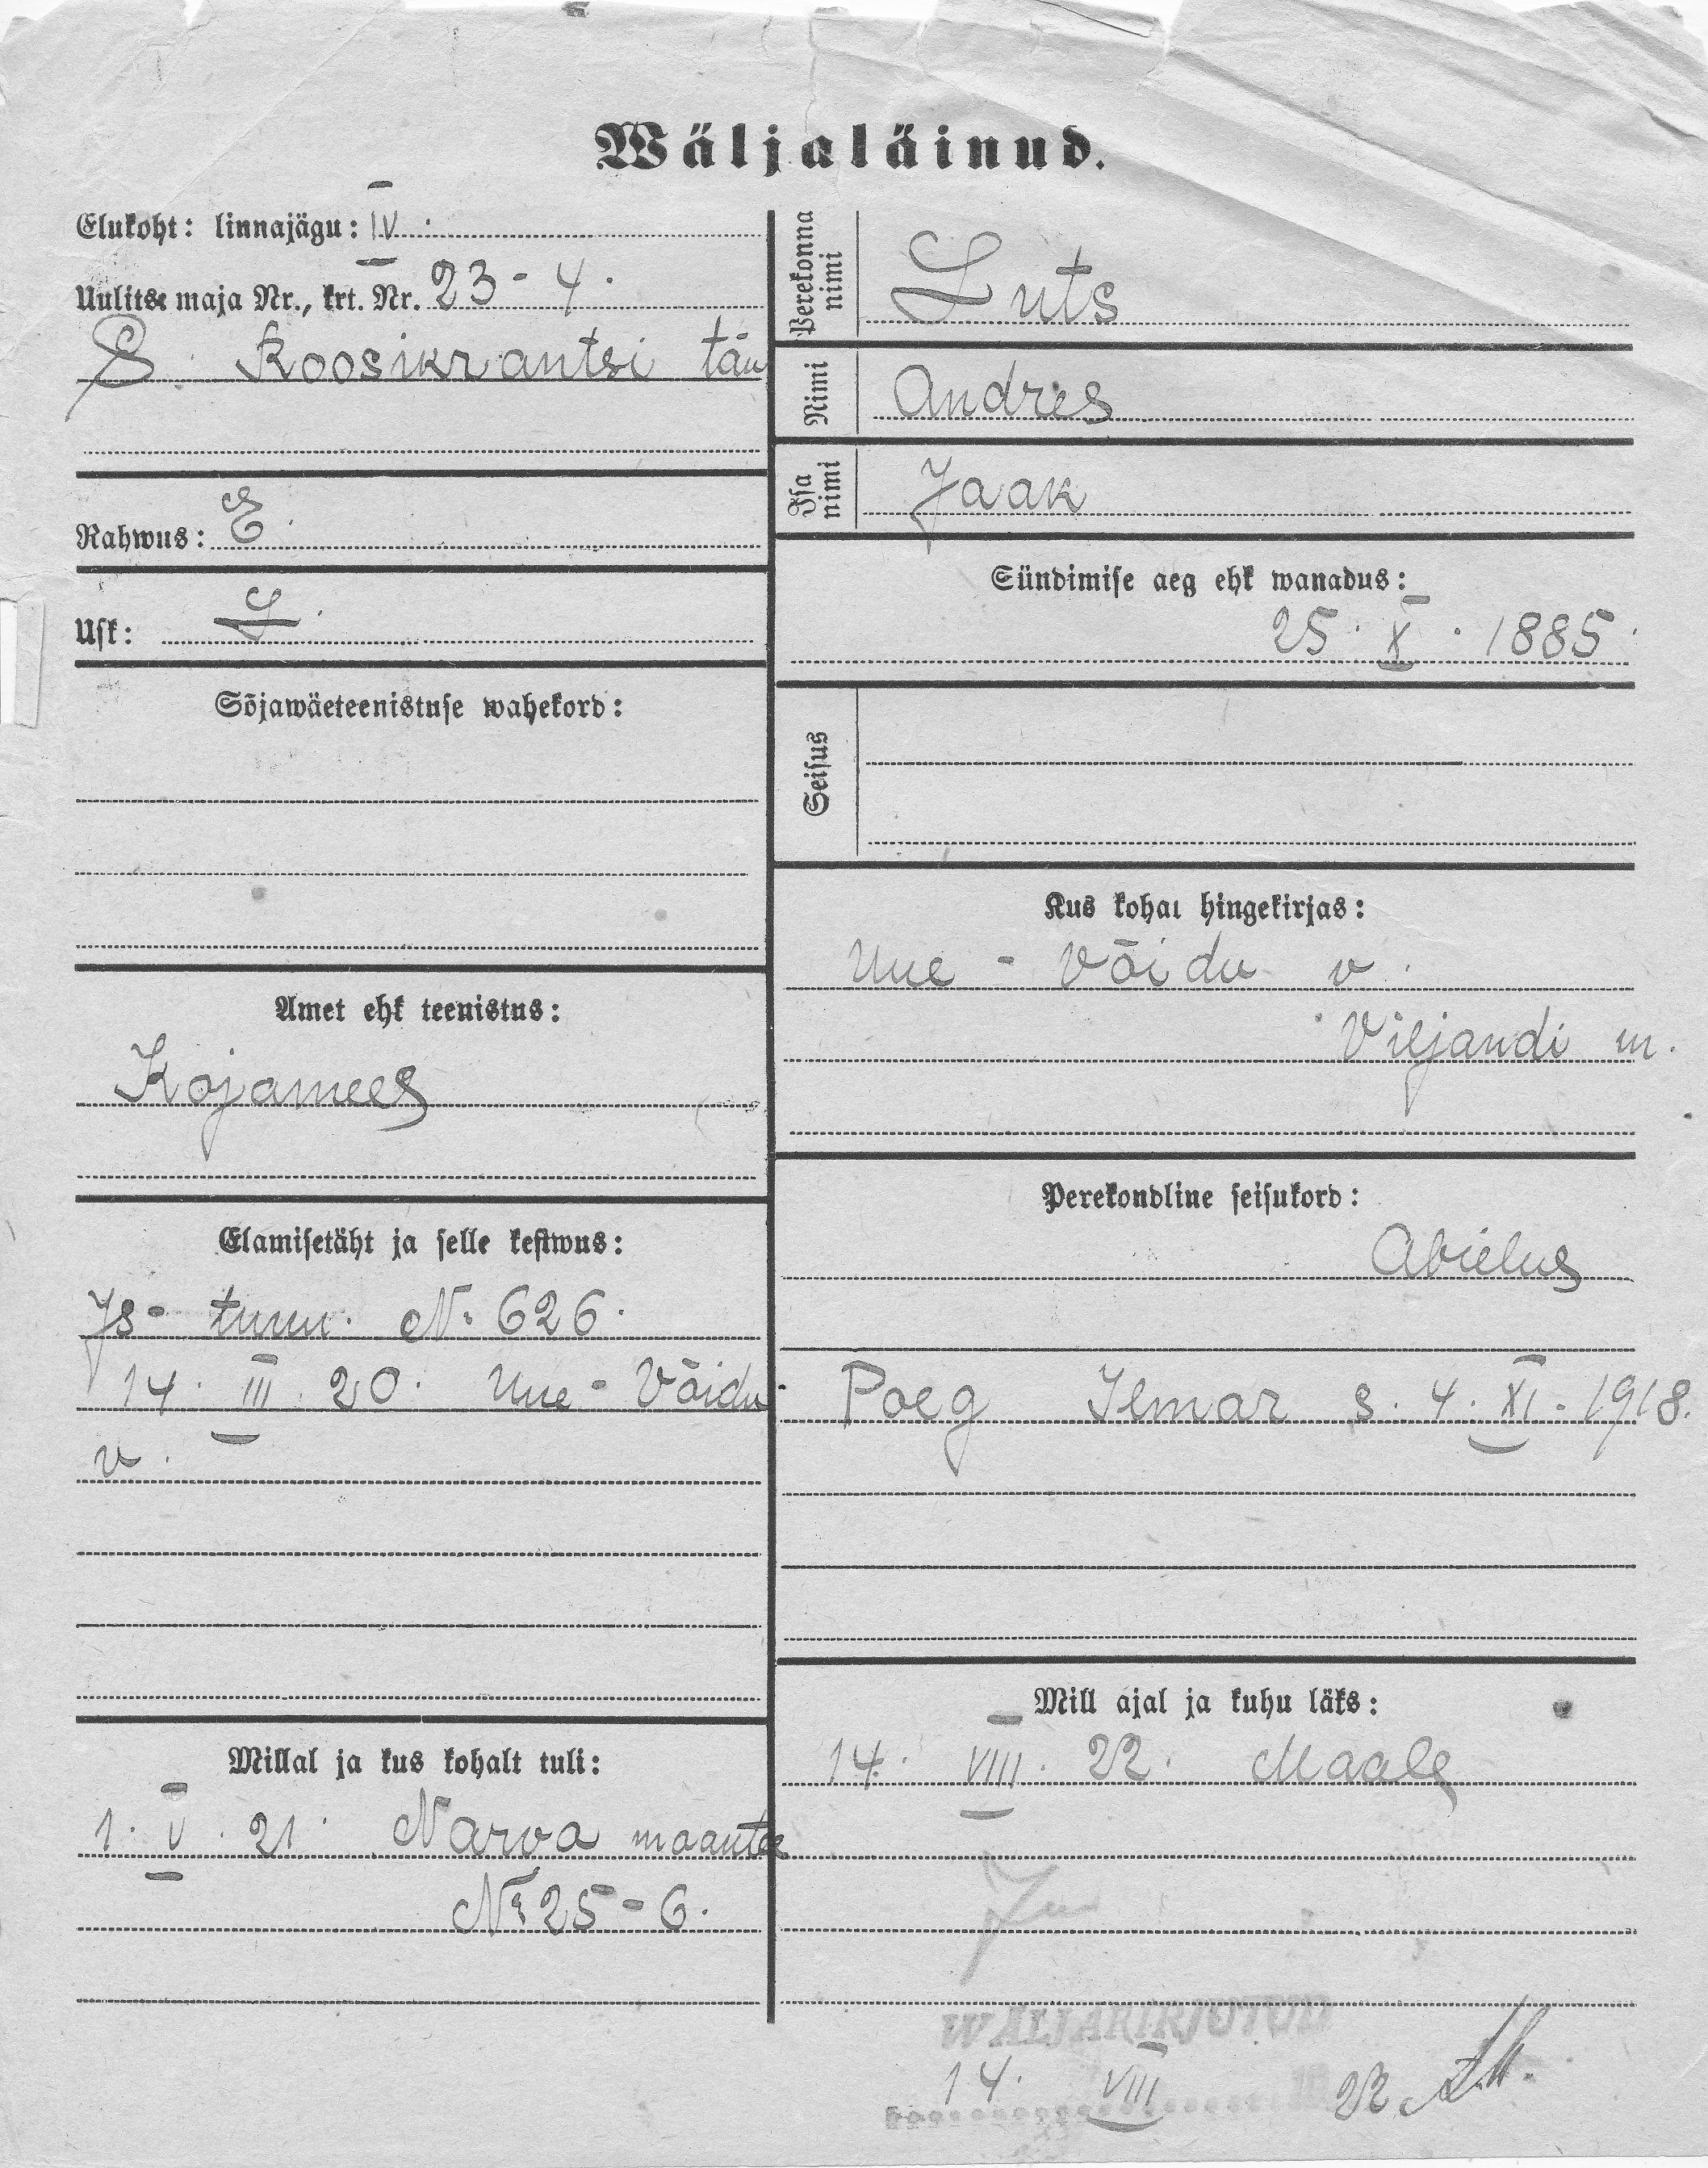 Wäljaläinud.
Elukoht: linnajägu: IV.
Uulitse maja Nr., krt. Nr. 23 - 4.
S. Roosikrantsi tän
Rahwus: E.
Usk: L.
Sõjawäeteenistuse wahekord:
Amet ehk teenistus:
Kojamees
Elamisetäht ja selle kestwus:
Is- tunn. № 626.
14. III. 20. Uue - Võidu
v.
Millal ja kus kohalt tuli:
1. V. 21. Narva maantee
№ 25 - 6.
Perekonna nimi
Luts
Nimi
Andres
Isa nimi
Jaak
Sündimise aeg ehk wanadus:
25. X. 1885.
Seisus
Kus kohat hingekirjas:
Uue - Võidu v.
Viljandi m.
Perekondline seisukord:
Abielus
Poeg Ilmar s. 4. XI. 1918.
Mill ajal ja kuhu läks:
14. VIII. 22. Maale
WÄLJAKIRJUTUD
14. VIII 22